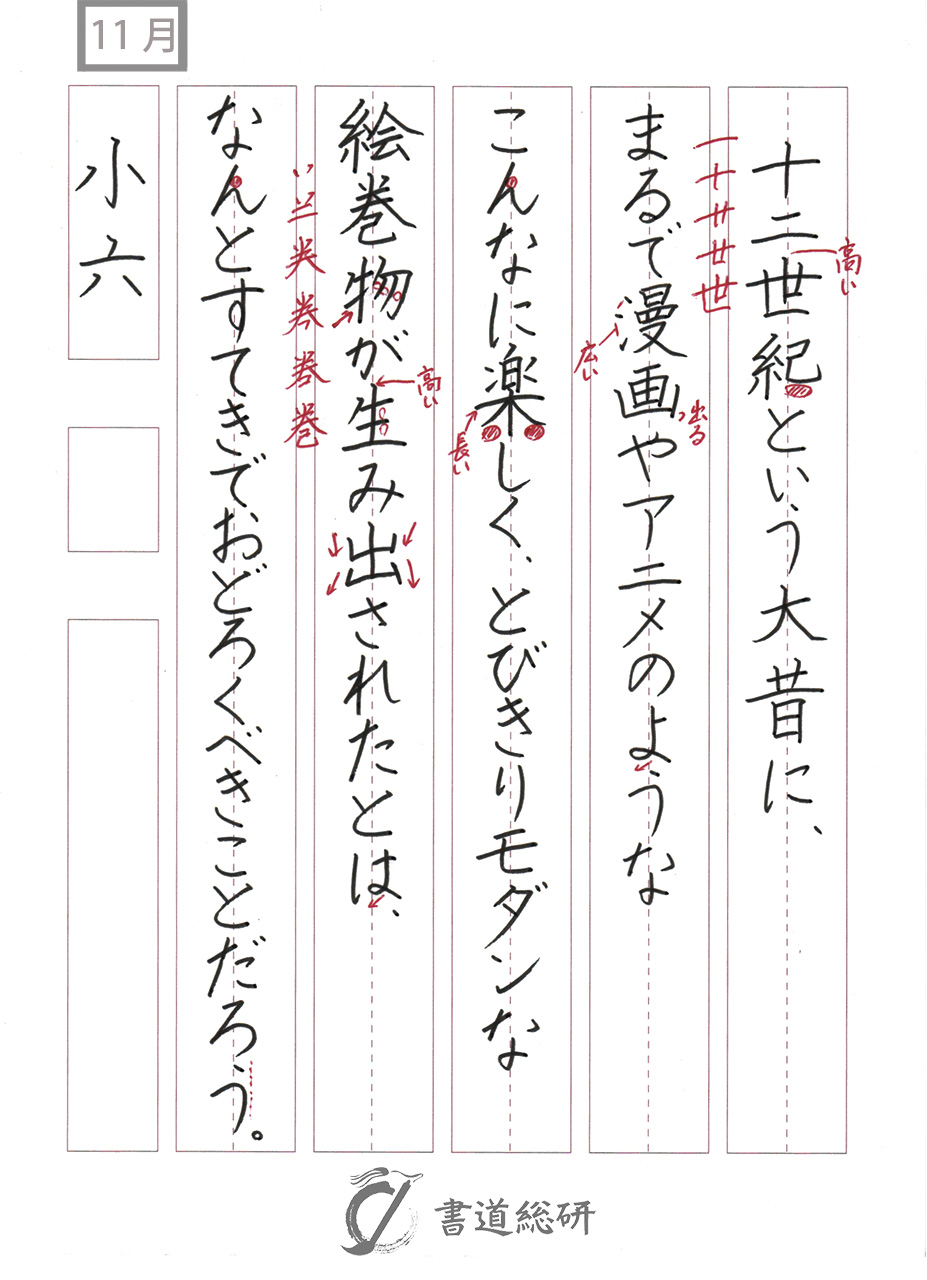 11月
十二世紀という大昔に、
高い
一十廿廿世
まるで漫画やアニメのような
広い
出る
こんなに楽しく、とびきりモダンな
長い
絵巻物が生み出されたとは、
高い
なんとすてきでおどろくべきことだろう。
小六
書道総研